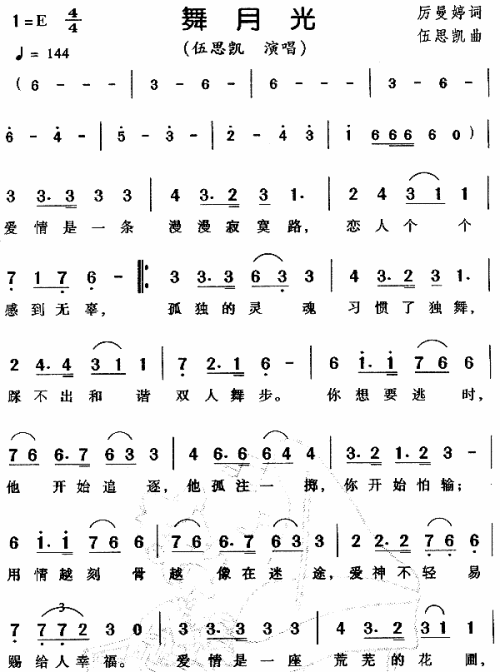 舞月光
1=E 4/4
厉曼婷词
♩= 144
(伍思凯 演唱)
伍思凯曲
( 6 - - - | 3 - 6 - | 6 - - - | 3 - 6 - |
6 - 4 - | 5 - 3 - | 2 - 4 3 | i 666 6 0 ) |
3 3. 3 3 3 | 4 3. 2 3 1. | 2 4 3 1 1 |
爱情是一条 漫漫寂寞路, 恋人个个
7 1 7 6 - ‖: 3 3. 3 6 3 3 | 4 3. 2 3 1. |
感到无辜, 孤独的灵魂 习惯了独舞,
2 4. 4 3 1 1 | 7 2. 1 6 - | 6 i. i 7 6 6 |
踩不出和谐 双人舞步。 你想要逃时,
7 6 6. 7 6 3 3 | 4 6. 6 6 4 4 | 3. 2 1. 2 3 - |
他开始追逐, 他孤注一掷, 你开始怕输;
6 i. i 7 6 6 | 7 6 6. 7 6 3 3 | 2 2. 2 7 6 6 |
用情越刻骨越像在迷途, 爱神不轻易
7 7 7 2 3 0 | 3 3. 3 3 3 | 4 3. 2 3 1. |
赐给人幸福。 爱情是一座荒芜的花圃,